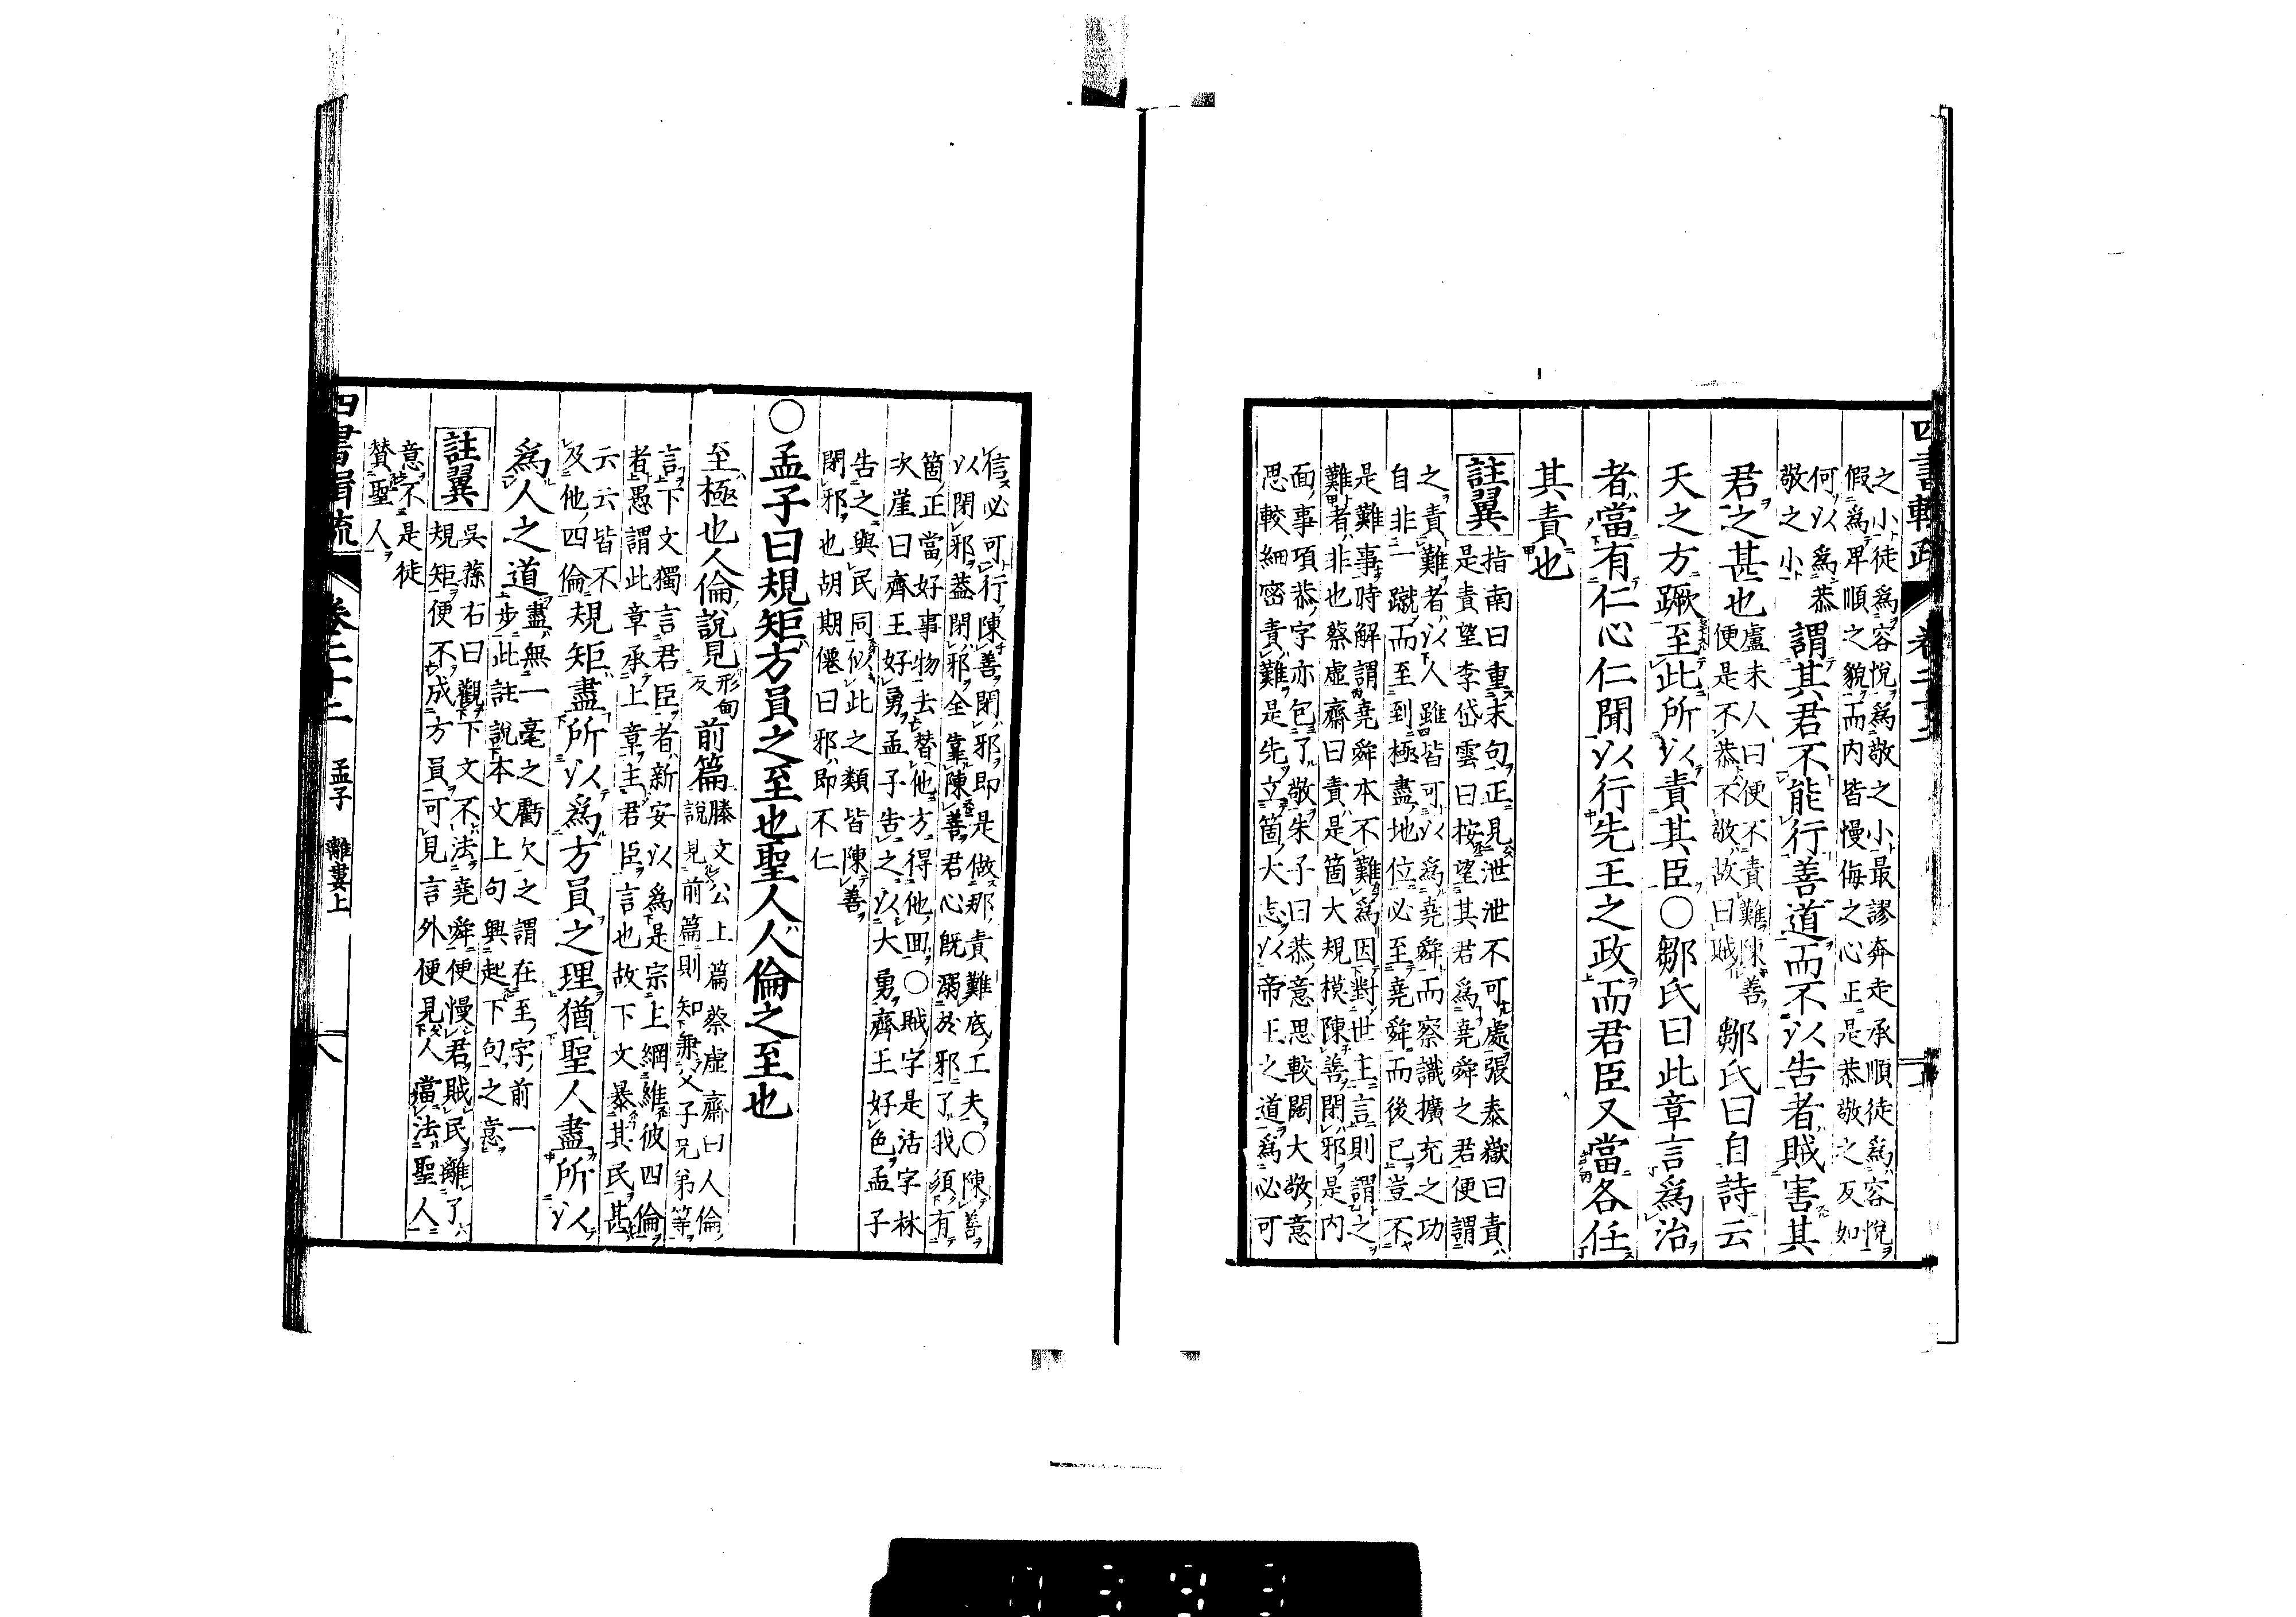 之小徒爲容悅爲敬之小最謬奔走承順徒爲容悅
假爲卑順之貌而内皆慢侮之心正是恭敬之反如
何以爲恭
敬之小
謂其君不能行善道而不以告者賊害其
君之甚也
盧未人曰便不責難陳善
便是不恭不敬故曰賊
鄒氏曰自詩云
天之方蹶至此所以責其臣○鄒氏曰此章言爲治
者當有仁心仁聞以行先王之政而君臣又當各任
其責也
註翼
指南曰重末句正見泄泄不可處張泰嶽曰責
是責望李岱雲曰按望其君爲堯舜之君便謂
之責難者以人雖皆可以爲堯舜而察識擴充之功
自非一蹴而至到極盡地位必至堯舜而後已豈不
是難事時解謂堯舜本不難爲因對世主言則謂之
難者非也蔡虛齋曰責是箇大規模陳善閉邪是内
面事項恭字亦包了敬朱子曰恭意思較闊大敬意
思較細密責難是先立箇大志以帝王之道爲必可
信必可行陳善閉邪即是做那責難底工夫○陳善
以閉邪蓋閉邪全靠陳善君心既溺於邪了我須有
箇正當好事物去替他方得他囬○賊字是活字林
次崖曰齊王好勇孟子告之以大勇齊王好色孟子
告之與民同似此之類皆陳善
閉邪也胡期僊曰邪即不仁
○孟子曰規矩方員之至也聖人人倫之至也
至極也人倫說見
形甸
反
前篇
滕文公上篇蔡虛齋曰人倫
說見前篇則知兼父子兄弟等
言下文獨言君臣者新安以爲是宗上綱維彼四倫
者愚謂此章承上章主君臣言也故下文暴其民甚
云云皆不
及他四倫
規矩盡所以爲方員之理猶聖人盡所以
爲人之道
盡無一毫之虧欠之謂在至字前一
步此註說本文上句興起下句之意
註翼
吳蓀右曰觀下文不法堯舜便慢君賊民離了
規矩便不成方員可見言外便見人當法聖人
意不是徒
贊聖人
卷二十二
孟子
離婁上
八